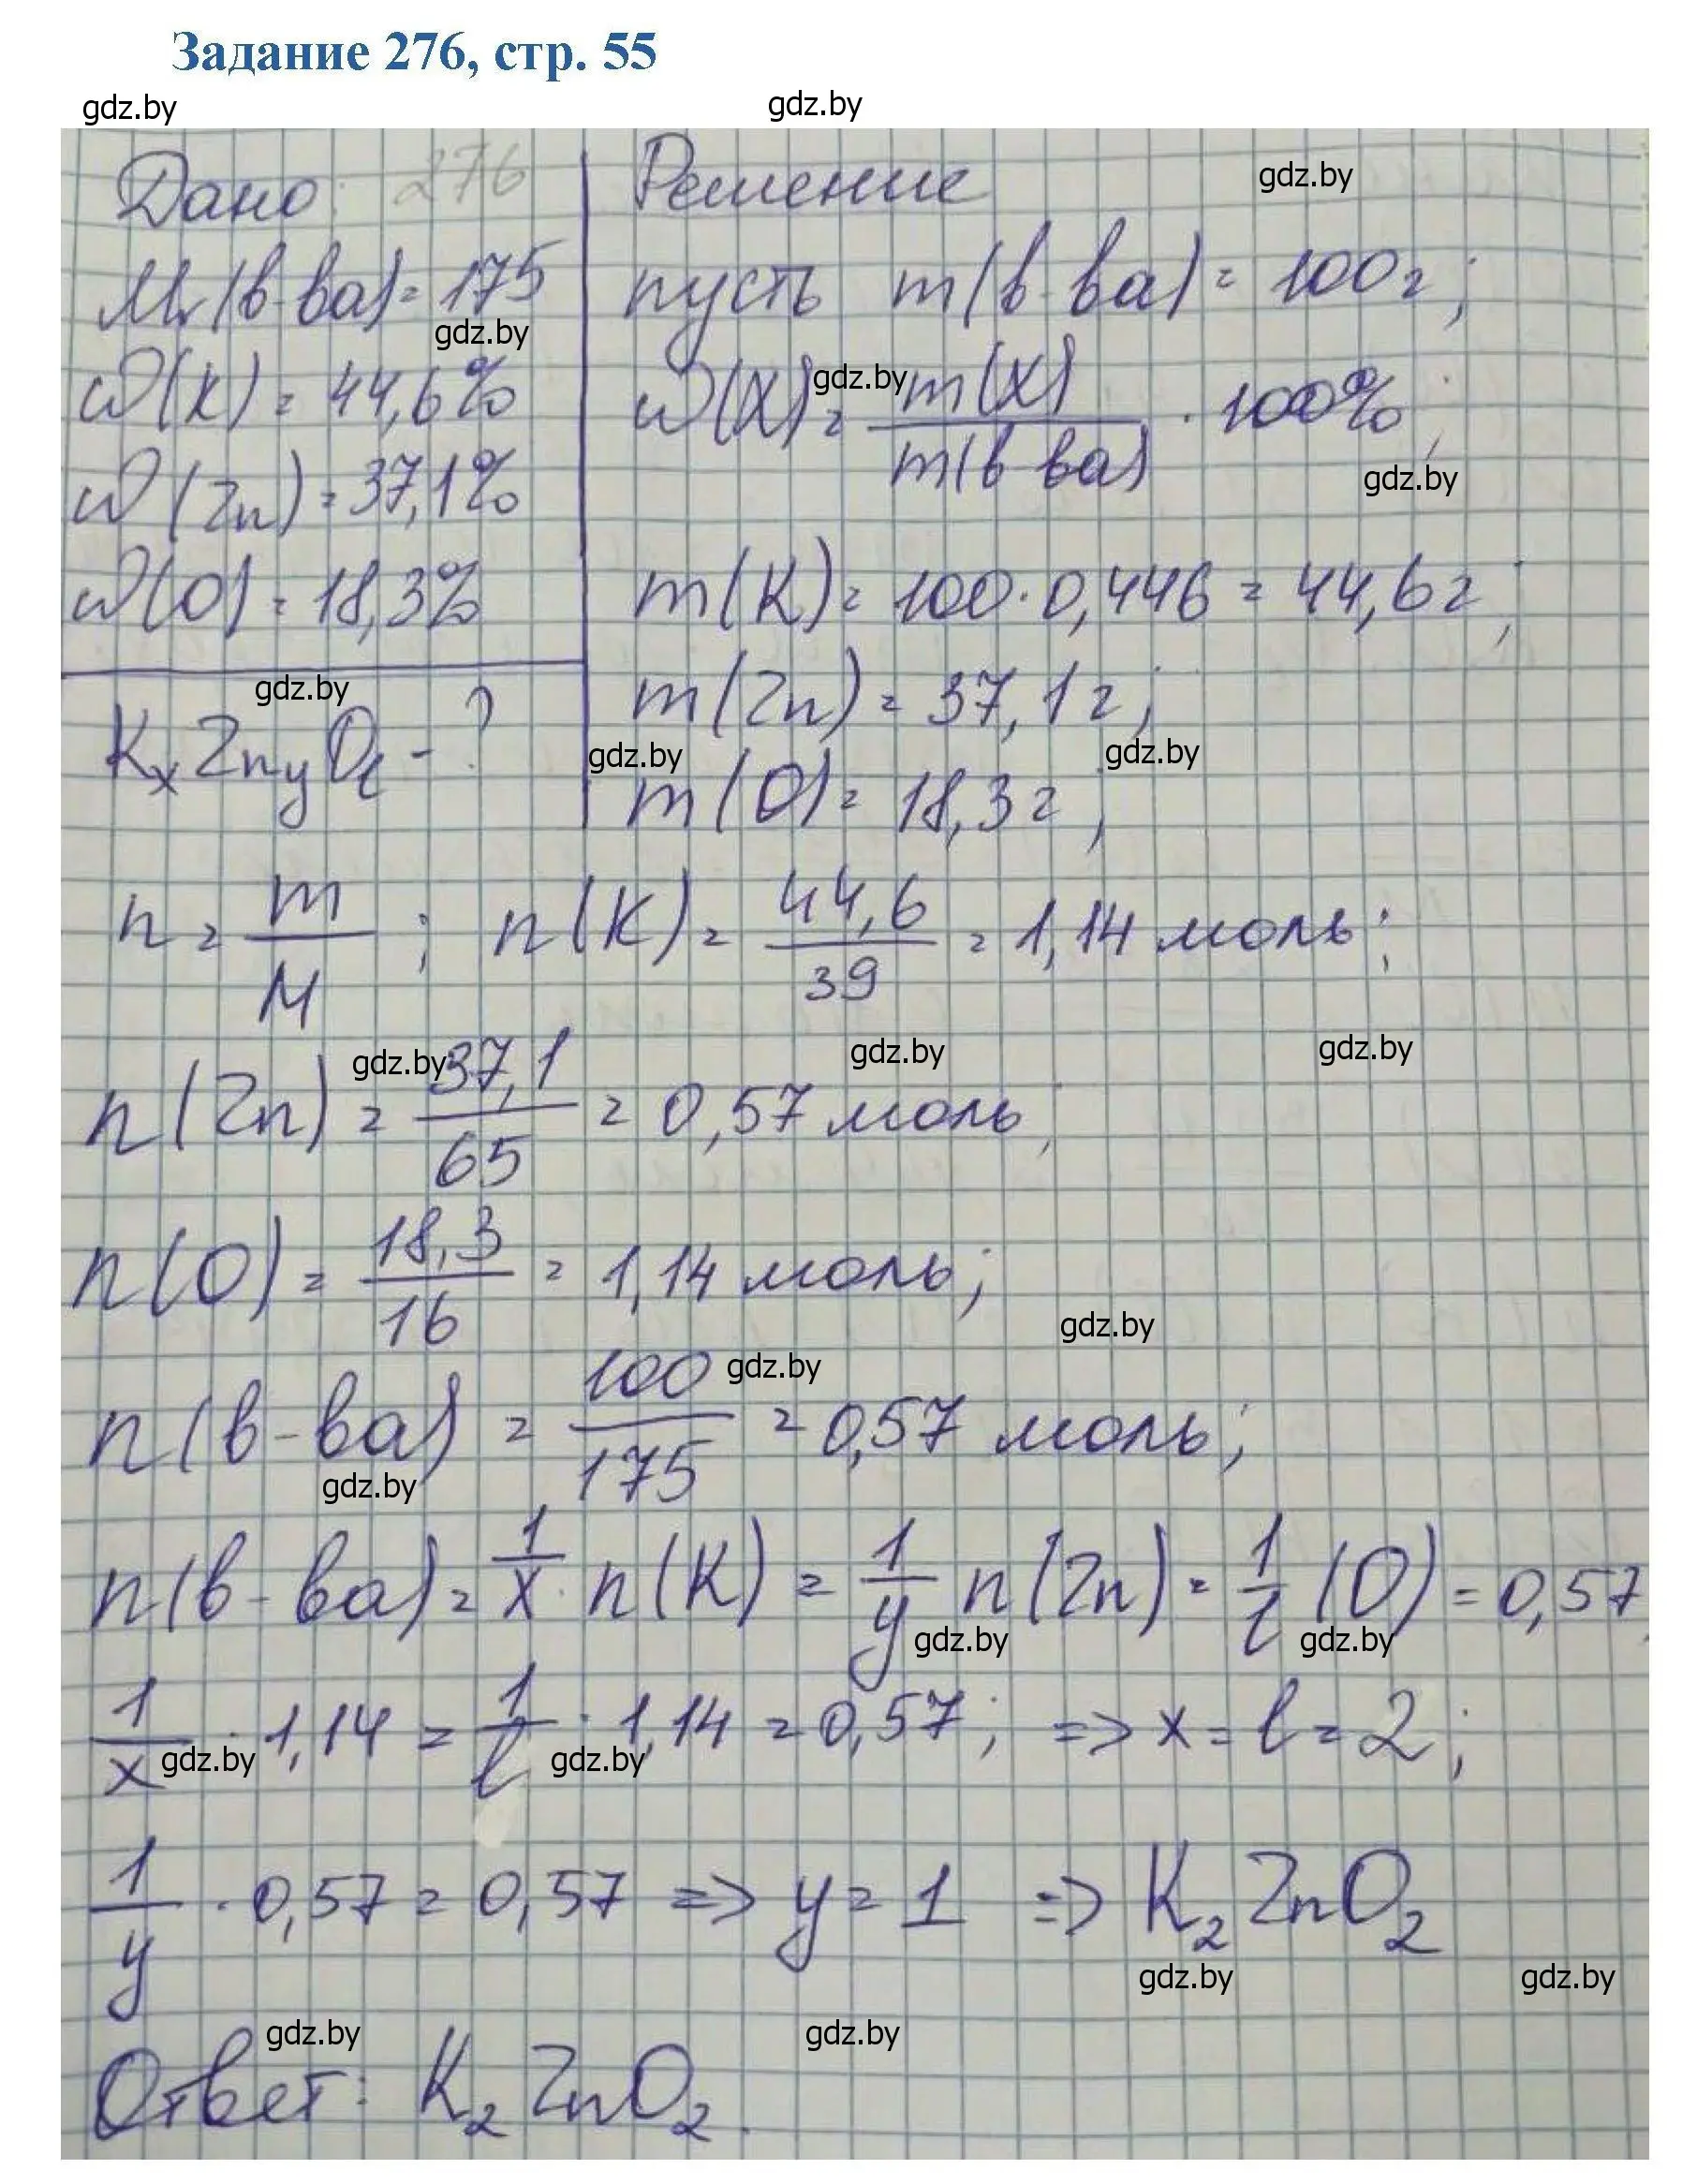 Задание 276, стр. 55
gdz.by gdz.by
Дано: 276 Решение gdz.by
Mr(в-ва) = 175 пусть m(в-ва) = 100г;
gdz.by
ω(K) = 44,6% ω(X) = m(X) / m(в-ва) · 100%;
gdz.by
ω(Zn) = 37,1%
gdz.by
ω(O) = 18,3% m(K) = 100·0,446 = 44,6г;
gdz.by m(Zn) = 37,1г;
KxZnyOl - ? gdz.by gdz.by
m(O) = 18,3г;
n = m / M ; n(K) = 44,6 / 39 = 1,14 моль;
gdz.by gdz.by gdz.by
n(Zn) = 37,1 / 65 = 0,57 моль;
n(O) = 18,3 / 16 = 1,14 моль;
gdz.by
gdz.by
n(в-ва) = 100 / 175 = 0,57 моль;
gdz.by
n(в-ва) = 1/x · n(K) = 1/y n(Zn) = 1/l (O) = 0,57
gdz.by gdz.by
1/x · 1,14 = 1/l · 1,14 = 0,57; => x = l = 2;
gdz.by gdz.by
1/y · 0,57 = 0,57 => y = 1 => K2ZnO2
gdz.by gdz.by
gdz.by gdz.by
Ответ: K2ZnO2.